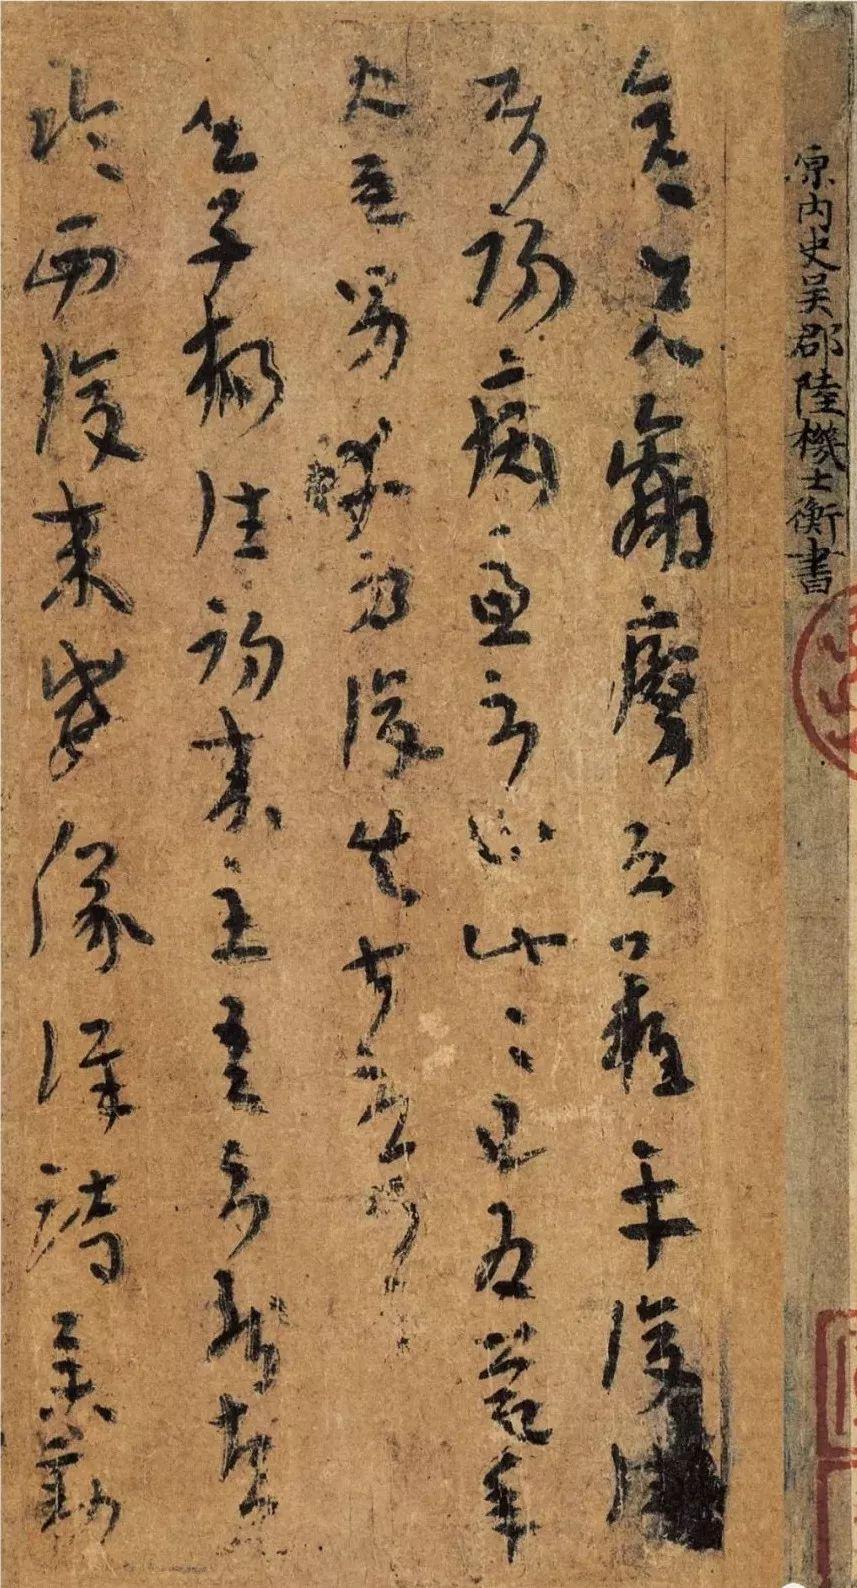 原內史吳郡陸機士衡書
彦先羸瘵恐難平復往
屬初病慮不止此〻已為慶承
使唯男幸為復失前憂耳
吳子楊往初來主吾不能盡
臨西復來威儀詳跱舉動